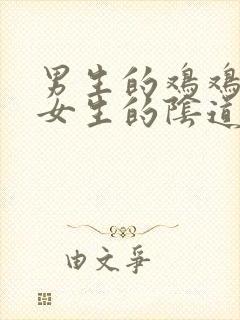 男生的鸡鸡
女生的陰道
由文爭